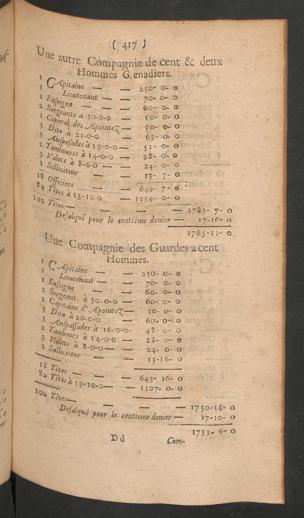 ( 417 )
Une autre Compagnie de cent & deux
Hommes Grenadiers.
1 CApitaine — — 250- 0- 0
1 Lieutenant — — 70- 0- 0
1 Enseigne — — 60- 0- 0
2 Sergeants a 30:0:0 — 60- 0- 0
1 Caporal des Apointez — 30- 0- 0
3 Dito à 21-0-0 — 63- 0- 0
3 Anspesades à 17-0-0 — 51- 0- 0
2 Tambours à 14-0-0 — 28- 0- 0
3 Valets à 8-0-0 — 24- 0- 0
1 Solliciteur — — 13- 7- 0
18 Officiers — — 649- 7- 0
84 Têtes à 13-10-0 — 1134- 0- 0
102 Têtes — — — 1783- 7- 0
Desalqué pour le centième denier — 17-16- 0
1765-11- 0
Une Compagnie des Guardes a cent
Hommes.
1 CApitaine — — 250- 0- 0
1 Lieutenant — — 70- 0- 0
1 Enseigne — — 60- 0- 0
2 Sergeant: à 30:0:0 — 60- 0- 0
1 Capitaine d'Apointez — 30- 0- 0
3 Dito à 20-0-0 — 60- 0- 0
3 Anspassades à 16:0:0 — 48- 0- 0
2 Tambours à 14-0-0 — 28- 0- 0
3 Valets à 8-0-0 — 24- 0- 0
1 Solliciteur — — 13-16- 0
18 Têtes — — 643-16- 0
82 Têtes à 13-10-0 — 1107- 0- 0
100 Têtes — — — 1750-16- 0
Desalqué pour le centieme denier — 17-10- 0
1733- 6- 0
D d Com-